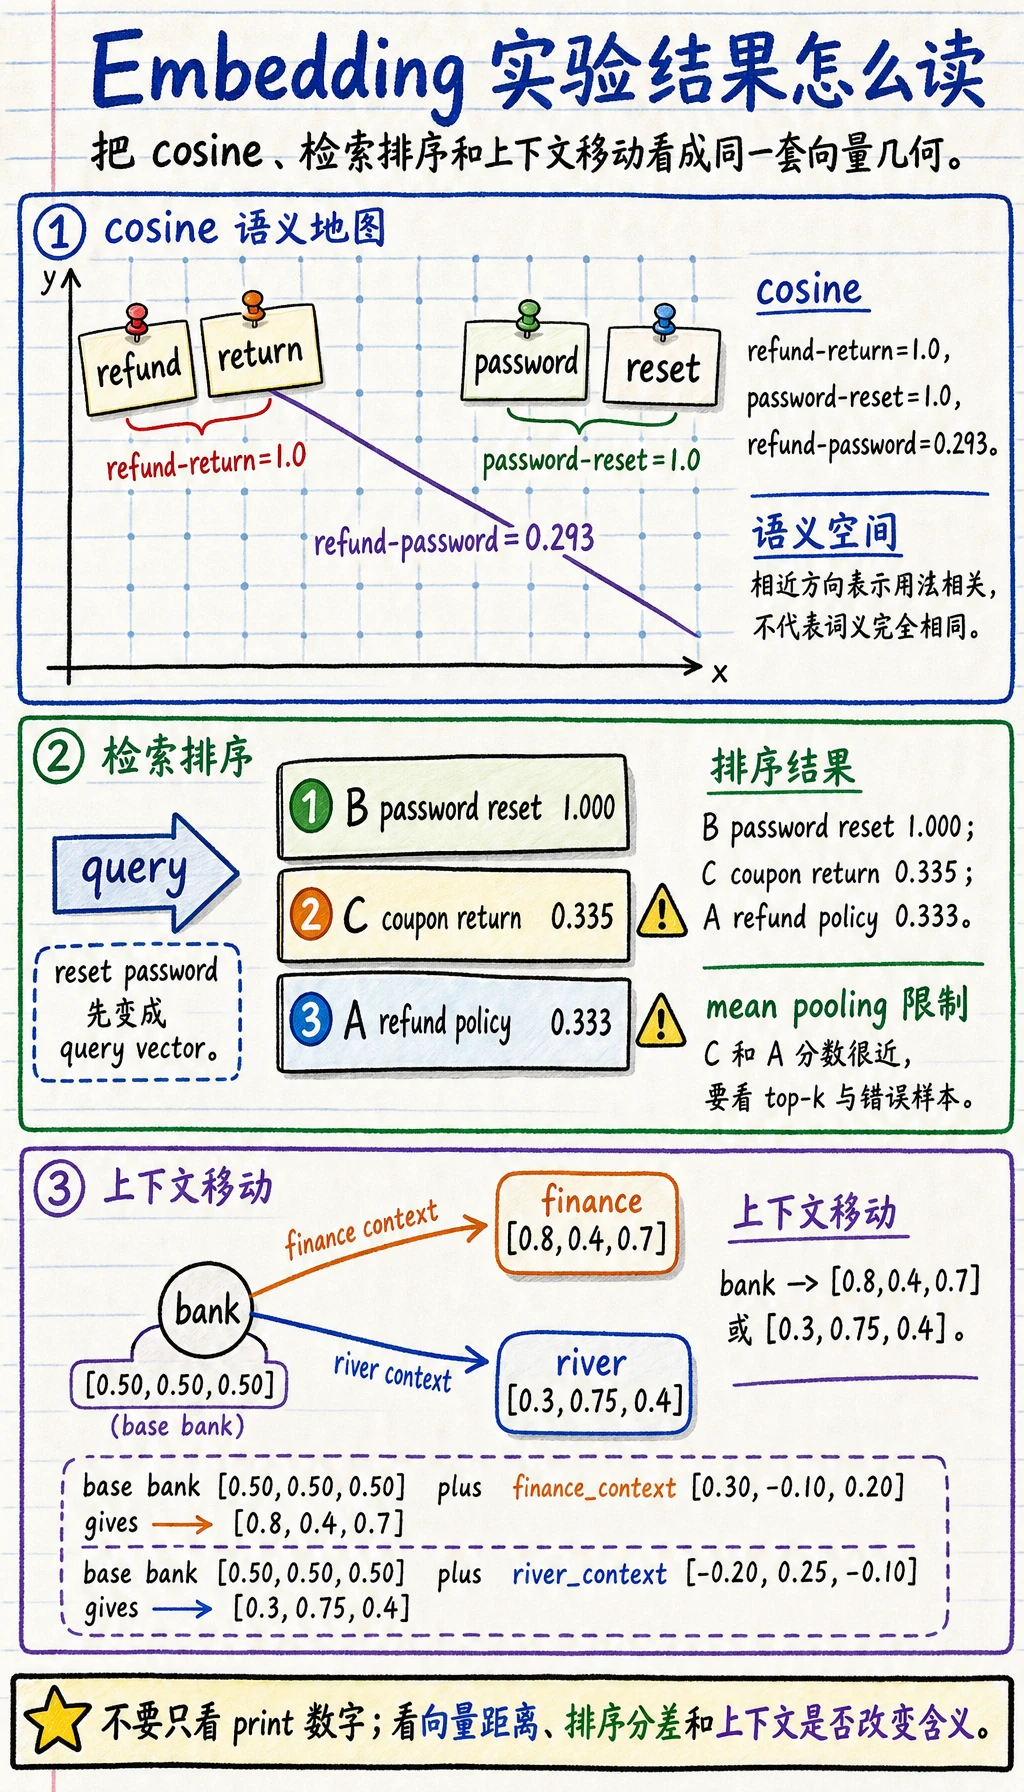 Embedding 实验结果怎么读
把 cosine、检索排序和上下文移动看成同一套向量几何。
① cosine 语义地图
y
refund
return
password
reset
refund-return=1.0
password-reset=1.0
refund-password=0.293
x
cosine
refund-return=1.0,
password-reset=1.0,
refund-password=0.293。
语义空间
相近方向表示用法相关,
不代表词义完全相同。
② 检索排序
query
reset password
先变成
query vector。
1 B password reset 1.000
2 C coupon return 0.335
3 A refund policy 0.333
排序结果
B password reset 1.000;
C coupon return 0.335;
A refund policy 0.333。
mean pooling 限制
C 和 A 分数很近,
要看 top-k 与错误样本。
③ 上下文移动
bank
[0.50, 0.50, 0.50]
(base bank)
finance context
river context
finance
[0.8, 0.4, 0.7]
river
[0.3, 0.75, 0.4]
上下文移动
bank → [0.8, 0.4, 0.7]
或 [0.3, 0.75, 0.4]。
base bank [0.50, 0.50, 0.50] plus finance_context [0.30, -0.10, 0.20]
gives → [0.8, 0.4, 0.7]
base bank [0.50, 0.50, 0.50] plus river_context [-0.20, 0.25, -0.10]
gives → [0.3, 0.75, 0.4]
不要只看 print 数字；看向量距离、排序分差和上下文是否改变含义。